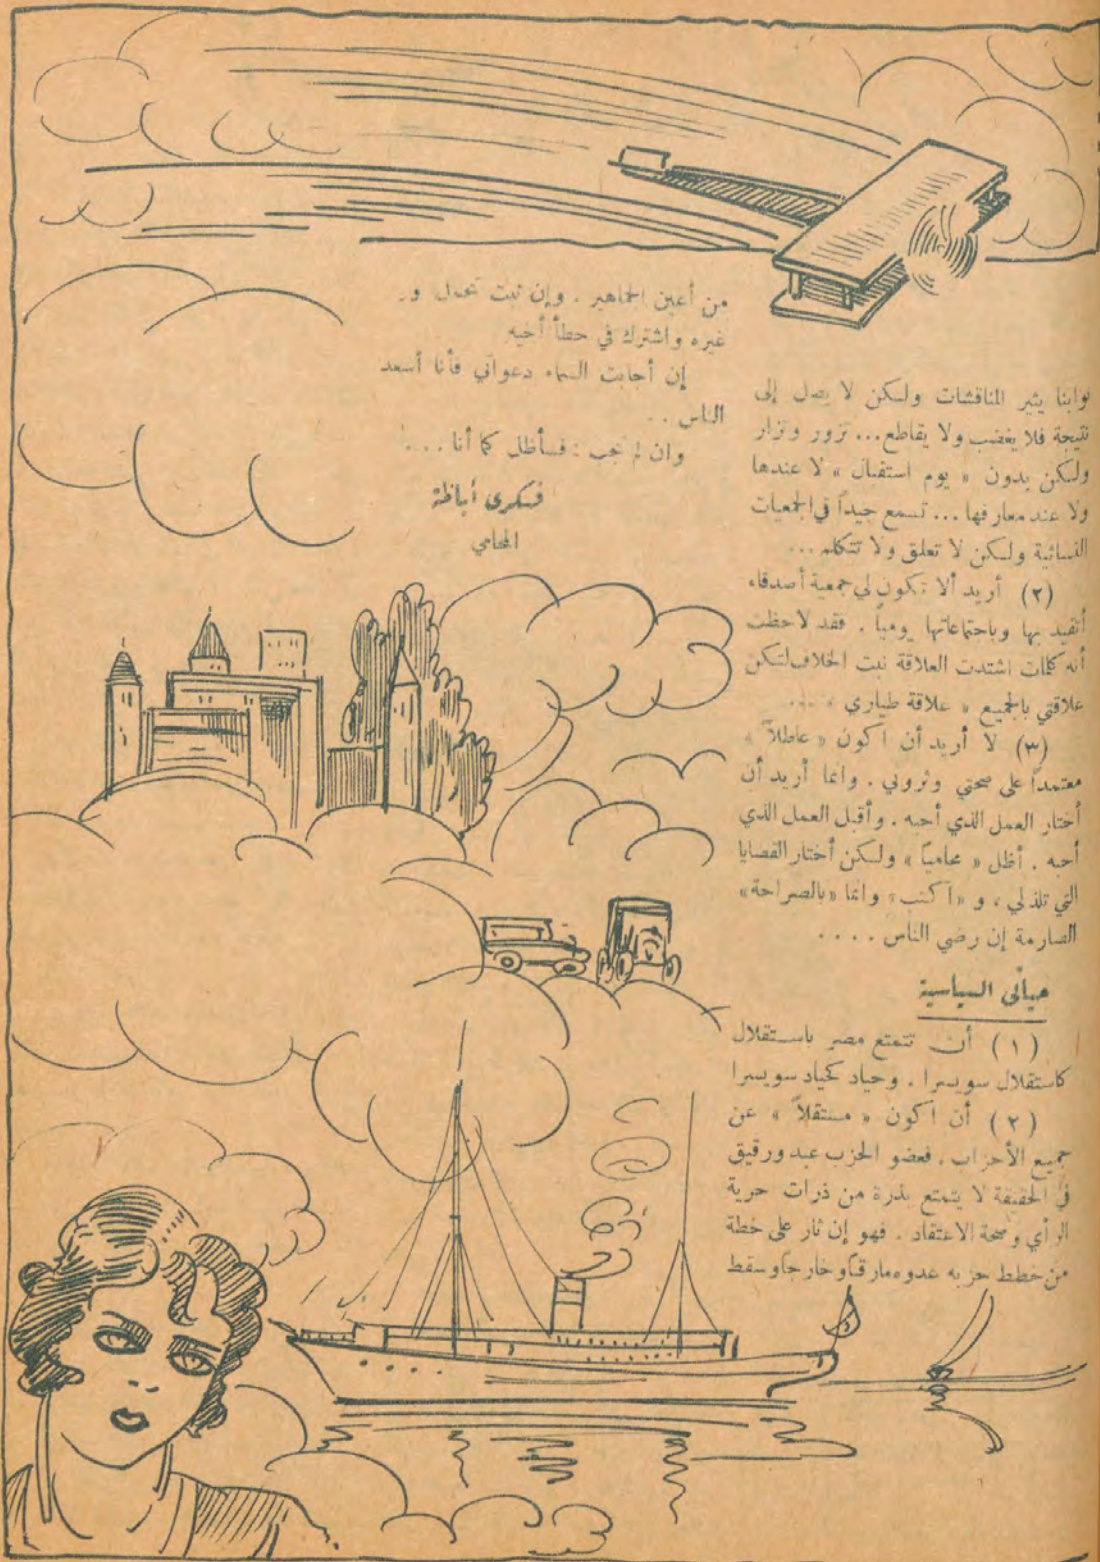 نوابنا يثير المناقشات ولكن لا يصل إلى
نتيجة فلا يغضب ولا يقاطع... تزور وتزار
ولكن بدون « يوم استقبال » لا عندها
ولا عند معارفها ... تسمع جيداً في الجمعيات
النسائية ولكن لا تعلق ولا تتكلم ...
(٢) أريد ألا تكون لي جمعية أصدقاء
أتقيد بها وباجتماعاتها يومياً . فقد لاحظت
أنه كلمات اشتدت العلاقة نبت الخلاف لتكن
علاقتي بالجميع « علاقة طياري » ...
(٣) لا أريد أن أكون « عاطلاً »
معتمداً على صحتي وثروتي . وانما أريد أن
أختار العمل الذي أحبه . وأقبل العمل الذي
أحبه . أظل « محامياً » ولكن أختار القضايا
التي تلذ لي ، و « أكتب » وانما « بالصراحة »
الصارمة إن رضي الناس . . . .
السياسية
(١) أن تتمتع مصر باستقلال
كاستقلال سويسرا . وحياد كحياد سويسرا
(٢) أن أكون « مستقلاً » عن
جميع الأحزاب . فعضو الحزب عبد ورقيق
في الحقيقة لا يتمتع بذرة من ذرات حرية
الرأي وصحة الاعتقاد . فهو إن ثار على خطة
من خطط حزبه عدوه مارقاً وخارجاً وسقط
من أعين الجماهير . وإن ثبت تحمل
غيره واشترك في خطأ أخيه
إن أجابت السماء دعواتي فأنا أسعد
الناس . .
وان لم تجب : فسأظل كما أنا . . .
فكرى أباظة
المحامي